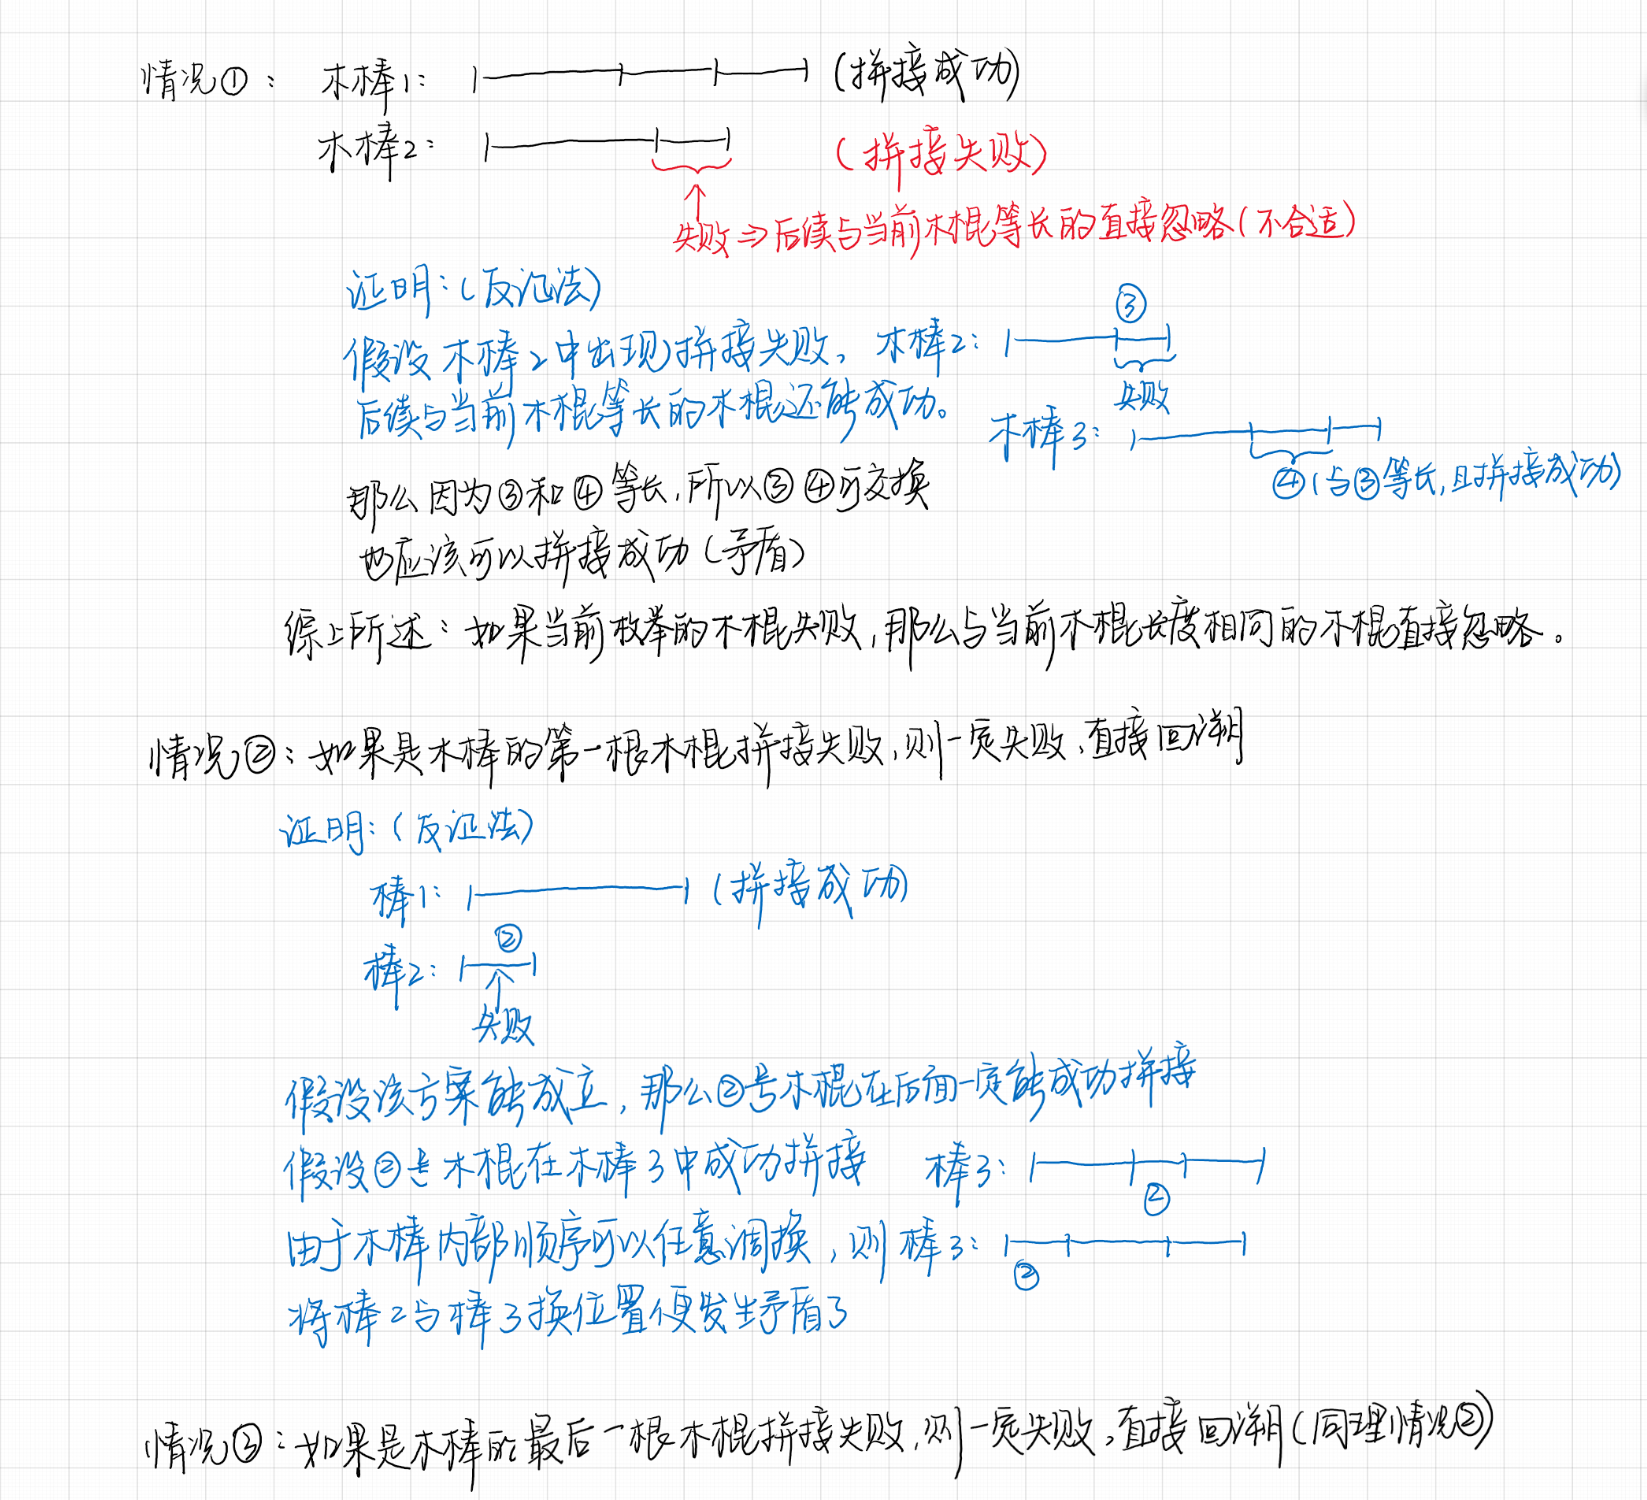 情况①： 木棒1： (拼接成功)
木棒2： (拼接失败)
失败⇒后续与当前木棍等长的直接忽略(不合适)
证明：(反证法)
③
假设木棒2中出现拼接失败， 木棒2：
失败
后续与当前木棍等长的木棍还能成功。
木棒3：
④(与③等长,且拼接成功)
那么因为③和④等长,所以③④可交换
也应该可以拼接成功(矛盾)
综上所述：如果当前枚举的木棍失败,那么与当前木棍长度相同的木棍直接忽略。
情况②：如果是木棒的第一根木棍拼接失败,则一定失败,直接回溯
证明：(反证法)
棒1： (拼接成功)
②
棒2：
失败
假设该方案能成立,那么②号木棍在后面一定能成功拼接
假设②号木棍在木棒3中成功拼接 棒3：
②
由于木棒内部顺序可以任意调换,则棒3：
②
将棒2与棒3换位置便发生矛盾了
情况③：如果是木棒的最后一根木棍拼接失败,则一定失败,直接回溯(同理情况②)